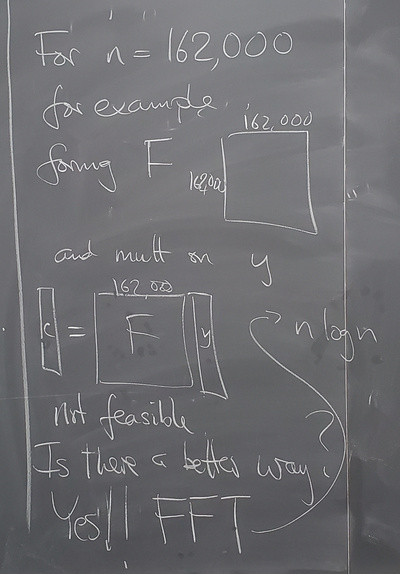 For n = 162,000
for example
162,000
forming F
162,000
and mult on y
162,000
c = F y
n log n
not feasible
Is there a better way?
Yes!! FFT